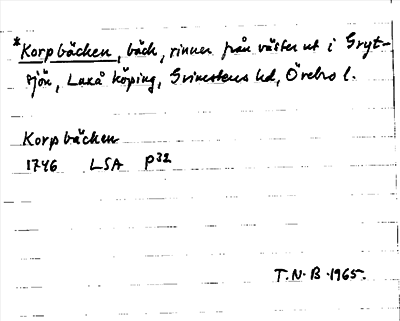 *Korpbäcken, bäck, rinner från väster ut i Gryt-
sjön, Laxå köping, Grimstens hd, Örebro l.
Korpbäcken
1746 LSA P32
T.N.B. 1965.